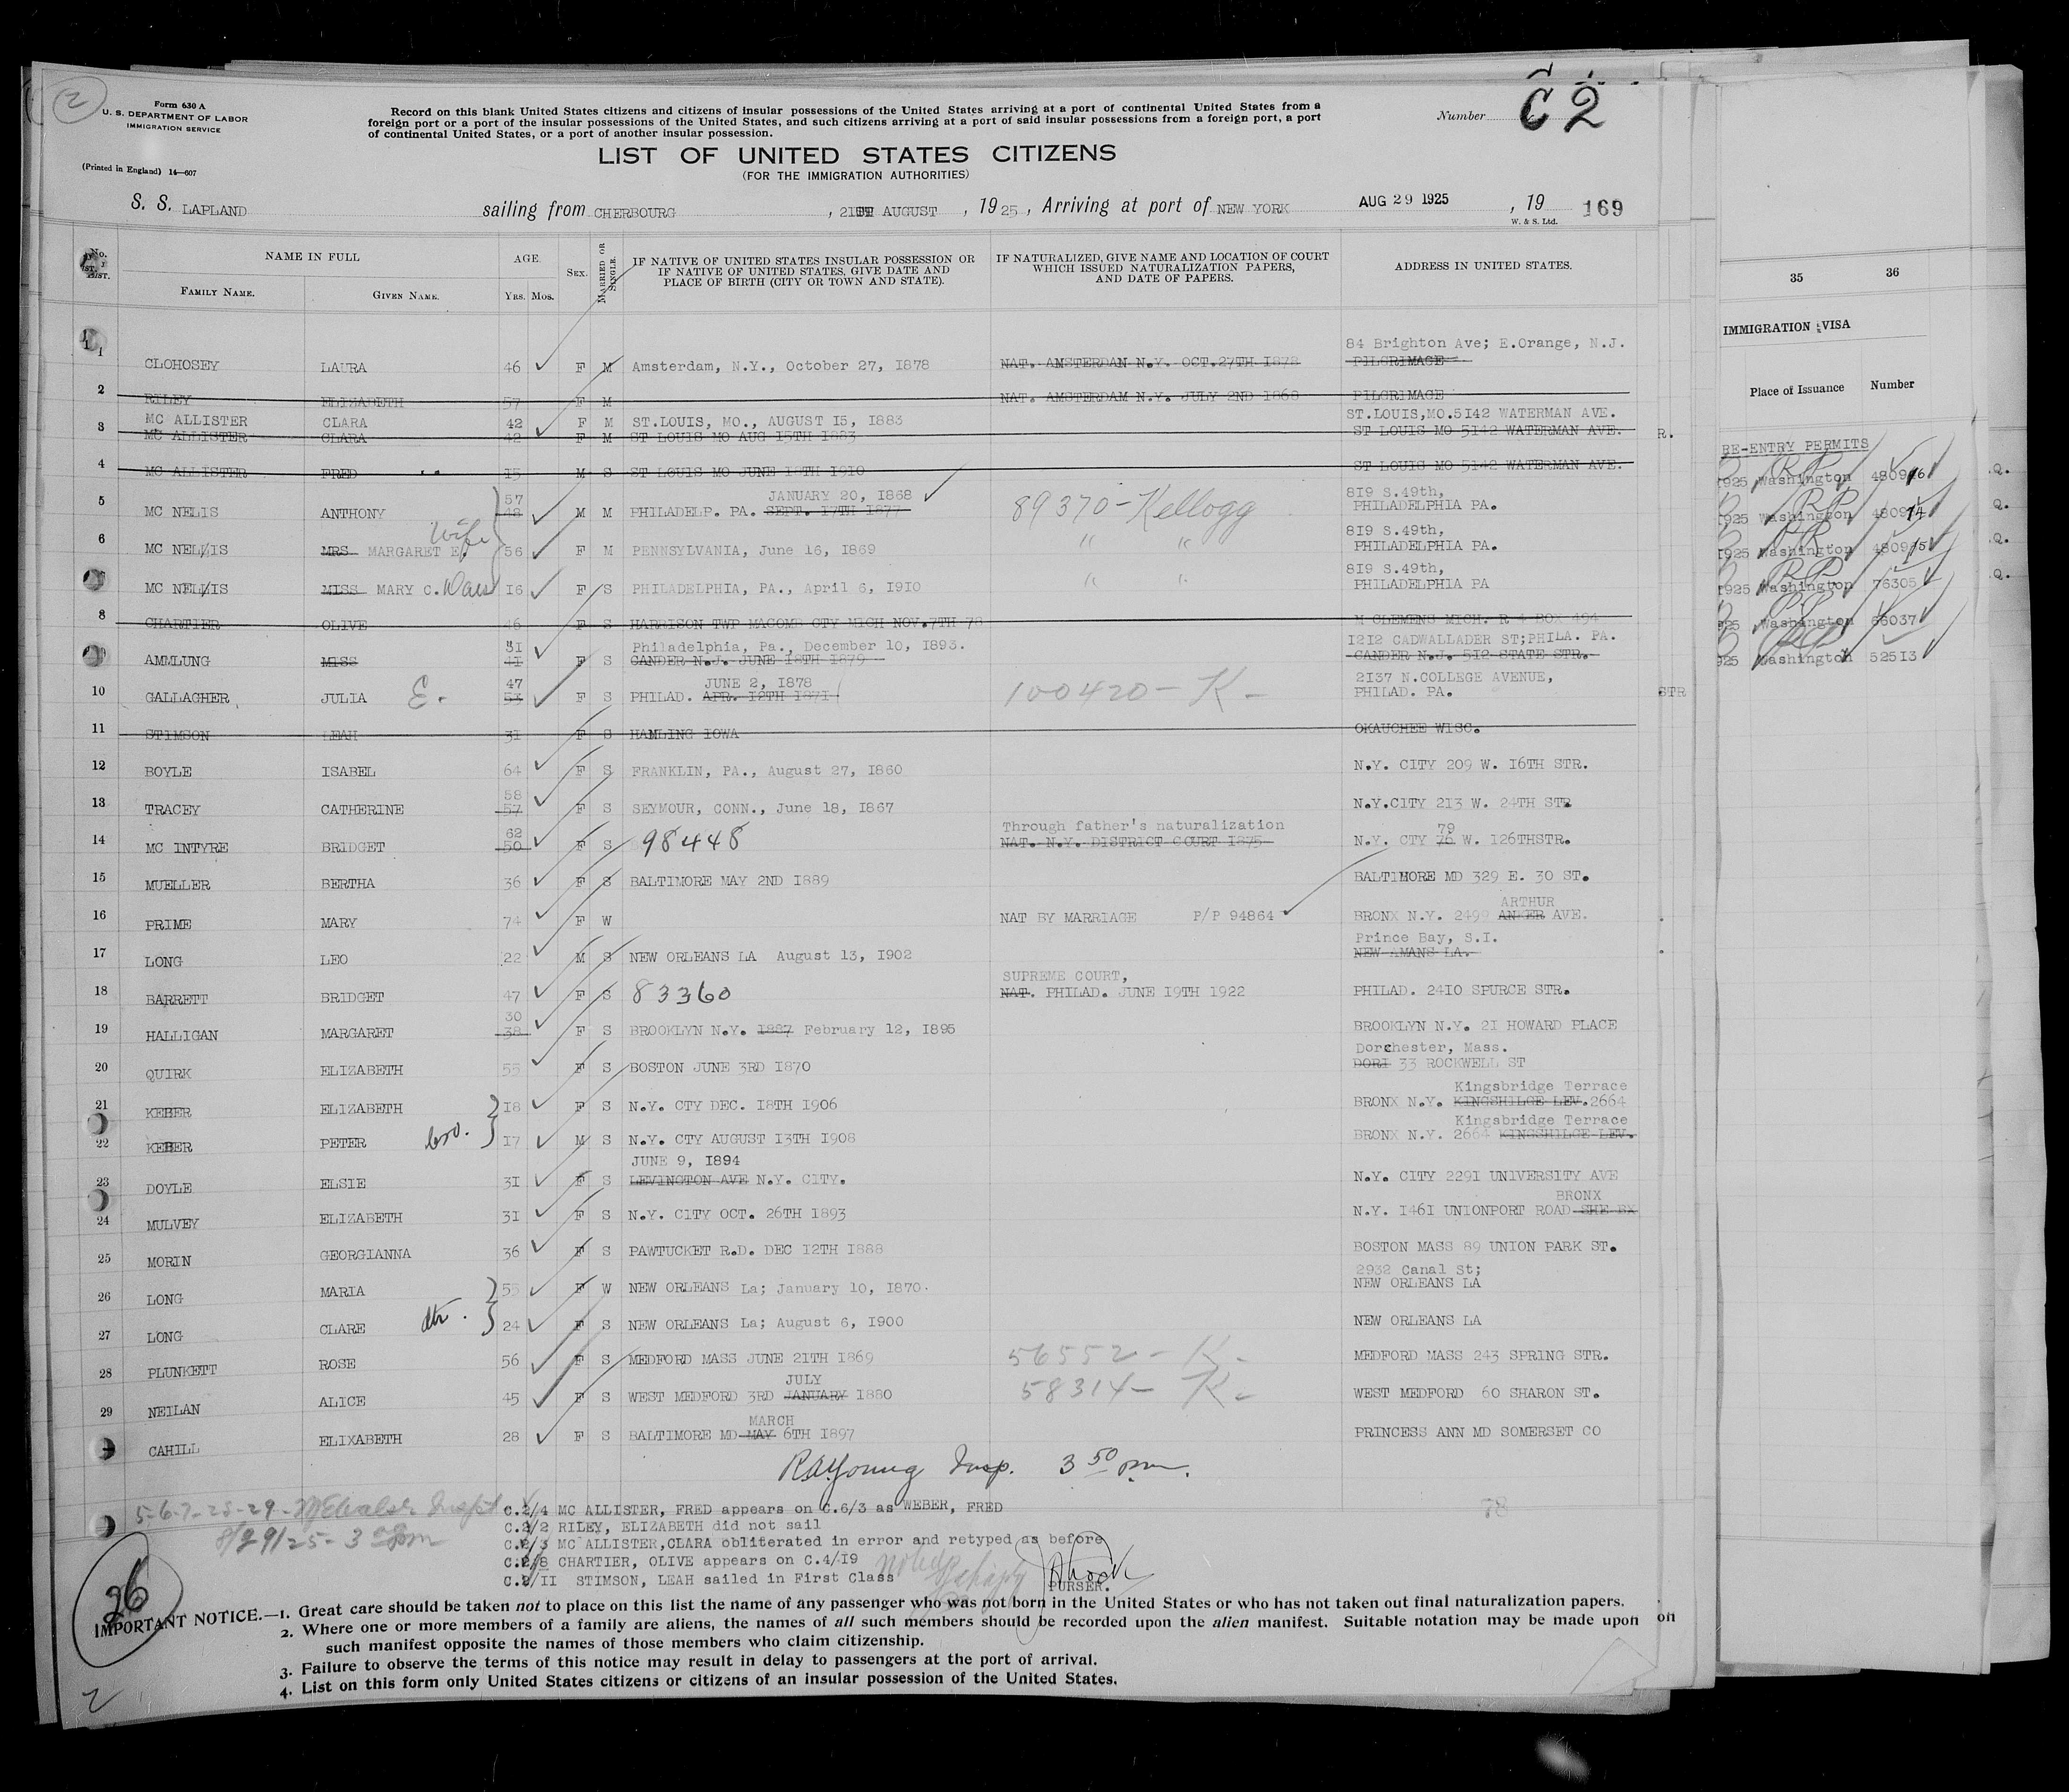 2
Form 630 A
U. S. DEPARTMENT OF LABOR
IMMIGRATION SERVICE
(Printed in England) 14—607
Record on this blank United States citizens and citizens of insular possessions of the United States arriving at a port of continental United States from a
foreign port or a port of the insular possessions of the United States, and such citizens arriving at a port of said insular possessions from a foreign port, a port
of continental United States, or a port of another insular possession.
Number C 2
LIST OF UNITED STATES CITIZENS
(FOR THE IMMIGRATION AUTHORITIES)
S. S. LAPLAND sailing from CHERBOURG , 21 AUGUST , 1925 , Arriving at port of NEW YORK AUG 29 1925 , 19 169
W. & S. Ltd.
No. NAME IN FULL AGE. SEX. MARRIED OR SINGLE. IF NATIVE OF UNITED STATES INSULAR POSSESSION OR IF NATIVE OF UNITED STATES, GIVE DATE AND PLACE OF BIRTH (CITY OR TOWN AND STATE). IF NATURALIZED, GIVE NAME AND LOCATION OF COURT WHICH ISSUED NATURALIZATION PAPERS, AND DATE OF PAPERS. ADDRESS IN UNITED STATES.
FAMILY NAME. GIVEN NAME. YRS. MOS.
84 Brighton Ave; E.Orange, N.J.
1 CLOHOSEY LAURA 46 F M Amsterdam, N.Y., October 27, 1878 NAT. AMSTERDAM N.Y. OCT.27TH 1878 PILGRIMAGE
2 RILEY ELIZABETH 57 F M NAT. AMSTERDAM N.Y. JULY 2ND 1868 PILGRIMAGE
MC ALLISTER CLARA 42 F M ST.LOUIS, MO., AUGUST 15, 1883 ST.LOUIS,MO.5142 WATERMAN AVE.
3 MC ALLISTER CLARA 42 F M ST LOUIS MO AUG 15TH 1883 ST LOUIS MO 5142 WATERMAN AVE. R.
4 MC ALLISTER FRED 15 M S ST LOUIS MO JUNE 18TH 1910 ST LOUIS MO 5142 WATERMAN AVE.
57 JANUARY 20, 1868 819 S.49th,
5 MC NELIS ANTHONY 48 M M PHILADELP. PA. SEPT. 17TH 1877 89370 - Kellogg PHILADELPHIA PA.
wife 819 S.49th,
6 MC NELIS MRS MARGARET E. 56 F M PENNSYLVANIA, June 16, 1869 " " PHILADELPHIA PA.
819 S.49th,
MC NELIS MISS MARY C. 16 F S PHILADELPHIA, PA., April 6, 1910 " " PHILADELPHIA PA
8 CHARTIER OLIVE 46 F S HARRISON TWP MACOMB CTY MICH NOV.7TH 78 M CLEMENS MICH. R 4 BOX 494
31 Philadelphia, Pa., December 10, 1893. 1212 CADWALLADER ST;PHILA. PA.
AMMLUNG MISS 41 F S CANDER N.J. JUNE 18TH 1879 CANDER N.J. 512 STATE STR.
47 JUNE 2, 1878 2137 N.COLLEGE AVENUE,
10 GALLAGHER JULIA E. F S PHILAD. APR. 12TH 1871 100420 - K - PHILAD. PA. STR
11 STIMSON LEAH 31 F S HAMLING IOWA OKAUCHEE WISC.
12 BOYLE ISABEL 64 F S FRANKLIN, PA., August 27, 1860 N.Y. CITY 209 W. 16TH STR.
58
13 TRACEY CATHERINE 57 F S SEYMOUR, CONN., June 18, 1867 N.Y.CITY 213 W. 24TH STR
62 Through father's naturalization 79
14 MC INTYRE BRIDGET 50 F S 98448 NAT. N.Y. DISTRICT COURT 1875 N.Y. CTY 76 W. 126THSTR.
15 MUELLER BERTHA 36 F S BALTIMORE MAY 2ND 1889 BALTIMORE MD 329 E. 30 ST.
ARTHUR
16 PRIME MARY 74 F W NAT BY MARRIAGE P/P 94864 BRONX N.Y. 2490 ANKER AVE.
Prince Bay, S.I.
17 LONG LEO 22 M S NEW ORLEANS LA August 13, 1902 NEW AMANS LA.
SUPREME COURT,
18 BARRETT BRIDGET 47 F S 83360 NAT. PHILAD. JUNE 19TH 1922 PHILAD. 2410 SPURCE STR.
30
19 HALLIGAN MARGARET 38 F S BROOKLYN N.Y. 1887 February 12, 1895 BROOKLYN N.Y. 21 HOWARD PLACE
Dorchester, Mass.
20 QUIRK ELIZABETH 55 F S BOSTON JUNE 3RD 1870 DORI 33 ROCKWELL ST
Kingsbridge Terrace
21 KEBER ELIZABETH 18 F S N.Y. CTY DEC. 18TH 1906 BRONX N.Y. KINGSHILGE LEV.2664
Kingsbridge Terrace
22 KEBER PETER bro. 17 M S N.Y. CTY AUGUST 13TH 1908 BRONX N.Y. 2664 KINGSHILGE LEV.
JUNE 9, 1894
23 DOYLE ELSIE 31 F S LEVINGTON AVE N.Y. CITY. N.Y. CITY 2291 UNIVERSITY AVE
BRONX
24 MULVEY ELIZABETH 31 F S N.Y. CITY OCT. 26TH 1893 N.Y. 1461 UNIONPORT ROAD SHE BX
25 MORIN GEORGIANNA 36 F S PAWTUCKET R.D. DEC 12TH 1888 BOSTON MASS 89 UNION PARK ST.
2932 Canal St;
26 LONG MARIA 55 F W NEW ORLEANS La; January 10, 1870. NEW ORLEANS LA
27 LONG CLARE dtr. 24 F S NEW ORLEANS La; August 6, 1900 NEW ORLEANS LA
28 PLUNKETT ROSE 56 F S MEDFORD MASS JUNE 21TH 1869 56552 - K - MEDFORD MASS 243 SPRING STR.
JULY
29 NEILAN ALICE 45 F S WEST MEDFORD 3RD JANUARY 1880 58314 - K - WEST MEDFORD 60 SHARON ST.
MARCH
CAHILL ELIXABETH 28 F S BALTIMORE MD MAY 6TH 1897 PRINCESS ANN MD SOMERSET CO
RA Young Insp. 3 50 pm.
5-6-7-28-29- 8/29/25- 3
78
C.2/4 MC ALLISTER, FRED appears on C.6/3 as WEBER, FRED
C.2/2 RILEY, ELIZABETH did not sail
C.2/3 MC ALLISTER,CLARA obliterated in error and retyped as before
C.2/8 CHARTIER, OLIVE appears on C.4/19
C.2/11 STIMSON, LEAH sailed in First Class
PURSER.
26
IMPORTANT NOTICE.—1. Great care should be taken not to place on this list the name of any passenger who was not born in the United States or who has not taken out final naturalization papers.
2. Where one or more members of a family are aliens, the names of all such members should be recorded upon the alien manifest. Suitable notation may be made upon on
such manifest opposite the names of those members who claim citizenship.
3. Failure to observe the terms of this notice may result in delay to passengers at the port of arrival.
4. List on this form only United States citizens or citizens of an insular possession of the United States.
2
35 36
IMMIGRATION VISA
Place of Issuance Number
RE-ENTRY PERMITS
1925 Washington Q.
1925 Washington Q.
1925 Washington Q.
1925 Washington 76305 Q.
Washington 66037
925 Washington 52513